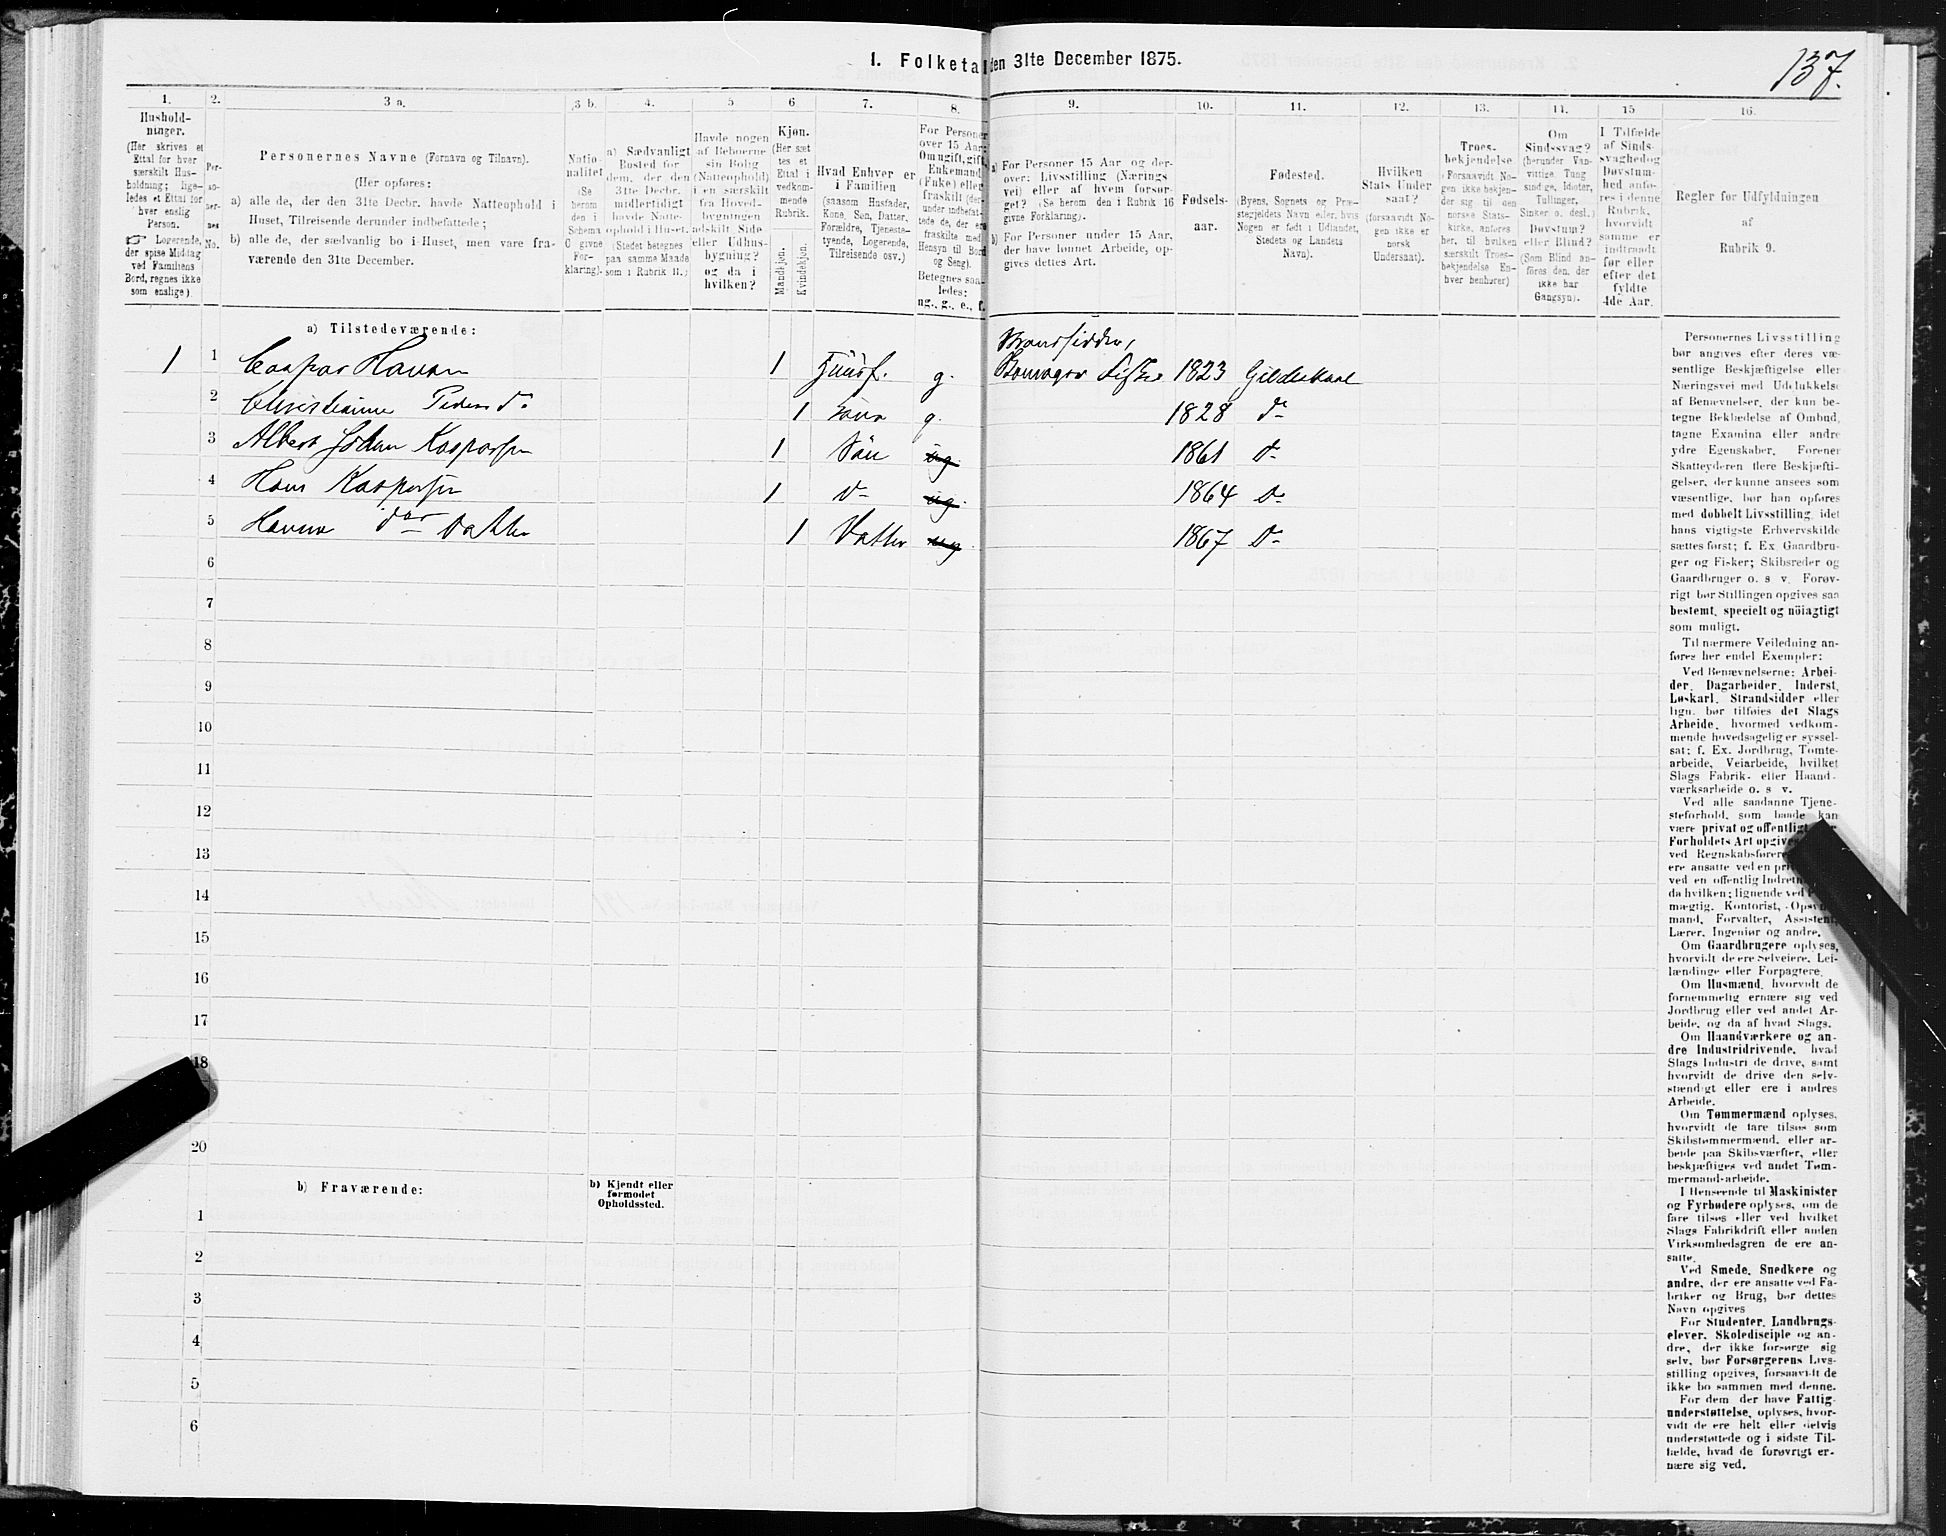 137.
1. Folketa den 31te December 1875.
1. 2. 3 a. 3 b. 4. 5 6 7. 8. 9. 10. 11. 12. 13. 14. 15 16.
Hushold-
ninger.
(Her skrives et
Ettal for hver
særskilt Hus-
holdning; lige-
ledes et Ettal for
hver enslig
Person.
☞ Logerende,
der spise Middag
ved Familiens
Bord, regnes ikke
som enslige).
Per-
so-
ner-
nes
No.
Personernes Navne (Fornavn og Tilnavn).
(Her opføres:
a) alle de, der den 31te Decbr. havde Natteophold i
Huset, Tilreisende derunder indbefattede;
b) alle de, der sædvanlig bo i Huset, men vare fra-
værende den 31te December.
Natio-
nalitet
(Se
herom
den i
Schema
C givne
For-
klaring).
a) Sædvanligt
Bosted for
dem, der den
31te Decbr.
midlertidigt
havde Natte-
ophold i Huset.
(Stedet betegnes
paa samme Maade
som i Rubrik 11.)
Havde nogen
af Beboerne
sin Bolig
(Natteophold)
i en særskilt
fra Hoved-
bygningen
adskilt Side-
eller Udhus-
bygning?
og da i
hvilken?
Kjøn.
(Her sæt
tes et
Ettal i
vedkom-
mende
Rubrik.
Mandkjøn.
Kvindekjøn.
Hvad Enhver er
i Familien
(saasom Husfader,
Kone, Søn, Datter,
Forældre, Tjeneste-
tyende, Logerende,
Tilreisende osv.)
For Personer
over 15 Aar:
Om ugift, gift,
Enkemand
(Enke) eller
fraskilt (der-
under indbefat-
tede de, der ere
fraskilte med
Hensyn til Bord
og Seng).
Betegnes saa-
ledes:
ug., g., e., f.
a) For Personer 15 Aar og der-
over: Livsstilling (Nærings
vei) eller af hvem forsør-
get? (Se herom den i Rubrik 16
givne Forklaring).
b) For Personer under 15 Aar,
der have lønnet Arbeide, op-
gives dettes Art.
Fødsels-
aar.
Fødested.
(Byens, Sognets og Præ-
stegjeldets Navn eller, hvis
Nogen er født i Udlandet,
Stedets og Landets
Navn).
Hvilken
Stats Under
saat?
(forsaavidt No-
gen ikke er
norsk
Undersaat).
Troes-
bekjendelse
(Forsaavidt No-
gen ikke bekjen-
der sig til den
norske Stats-
kirke, anføres
her, til hvilken
særskilt Troes-
bekjendelse En-
hver henhører)
Om
Sindssvag?
(herunder Van-
vittige Tung
sindige, Idioter,
Tullinger,
Sinker o. desl.)
Døvstum?
eller Blind?
(Som Blind an-
føres den, der
ikke har
Gangsyn).
I Tilfælde
af Sinds-
svaghed og
Døvstum-
hed anfø-
res i denne
Rubrik,
hvorvidt
samme er
indtraadt
før eller
efter det
fyldte
4de Aar.
Regler for Udfyldningen
af
Rubrik 9.
a) Tilstedeværende:
Strandsidder,
1 1 Caspar Hansen 1 Huusf. g. Fisker 1823 Gildeskaal
2 Christianne Pedersd 1 Kone g. 1828 do
3 Albert Johan Kaspersen 1 Søn ug. 1861 do
4 Hans Kaspersen 1 do ug. 1864 do
5 Hanna do Datter 1 Datter ug 1867 do
6
7
8
9
10
11
12
13
14
15
16
17
18
20
b) Fraværende:
b) Kjendt eller
formodet
Opholdssted.
1
2
3
4
5
6
Personernes Livsstilling
bør angives efter deres væ-
sentlige Beskjæftigelse eller
Næringsvei med Udelukkelse
af Benævnelser, der kun be-
tegne Beklædelse af Ombud,
tagne Examina eller andre
ydre Egenskaber. Forener
Skatteyderen flere Beskjæfti-
gelser, der kunne ansees som
væsentlige, bør han opføres
med dobbelt Livsstilling, idet
hans vigtigste Erhvervskilde
sættes først; f. Ex. Gaardbru-
ger og Fisker; Skibsreder og
Gaardbruger o. s v. Forøv-
rigt bør Stillingen opgives saa
bestemt, specielt og nöiagtigt
som muligt.
Til nærmere Veiledning an-
føres her endel Exempler:
Ved Benævnelserne: Arbei-
der, Dagarbeider, Inderst,
Løskarl, Strandsidder eller
lign. bør tilføies det Slags
Arbeide, hvormed vedkom-
mende hovedsagelig er syssel-
sat; f. Ex. Jordbrug, Tomte-
arbeide, Veiarbeide, hvilket
Slags Fabrik- eller Haand-
værksarbeide o. s v.
Ved alle saadanne Tjene-
steforhold, som baade kan
være privat og offentligt
Forholdets Art opgives
ved Regnskabsførere
ere ansatte ved en
ved en offentlig
da hvilken; lignende ved
mægtig, Kontorist, Opsyns-
mand, Forvalter, Assistent,
Lærer, Ingeniør og andre.
Om Gaardbrugere oplyses,
hvorvidt de ere Selveiere, Lei-
lændinge eller Forpagtere.
Om Husmænd, hvorvidt de
fornemmelig ernære sig ved
Jordbrug eller ved andet Ar-
beide, og da af hvad Slags.
Om Haandværkere og an-
dre Industridrivende, hvad
Slags Industri de drive, samt
hvorvidt de drive den selv-
stændigt eller ere i andres
Arbeide.
Om Tømmermænd oplyses,
hvorvidt de fare tilsøs som
Skibstømmermænd, eller ar-
beide paa Skibsværfter, eller
beskjæftiges ved andet Tøm-
mermand-arbeide.
I Henseende til Maskinister
og Fyrbødere oplyses, om de
fare tilsøs eller ved hvilket
Slags Fabrikdrift eller anden
Virksomhedsgren de ere an-
satte.
Ved Smede, Snedkere og
andre, der ere ansatte ved Fa-
briker og Brug, bør dettes
Navn opgives
For Studenter, Landbrugs-
elever, Skoledisciple og an-
dre, der ikke forsørge sig
selv, bør Forsørgerens Livs-
stilling opgives, forsaavidt de
ikke bo sammen med denne.
For dem, der have Fattig-
understøttelse, oplyses, hvor-
vidt de ere helt eller delvis
understøttede og i sidste Til-
fælde, hvad de forøvrigt er-
nære sig ved.